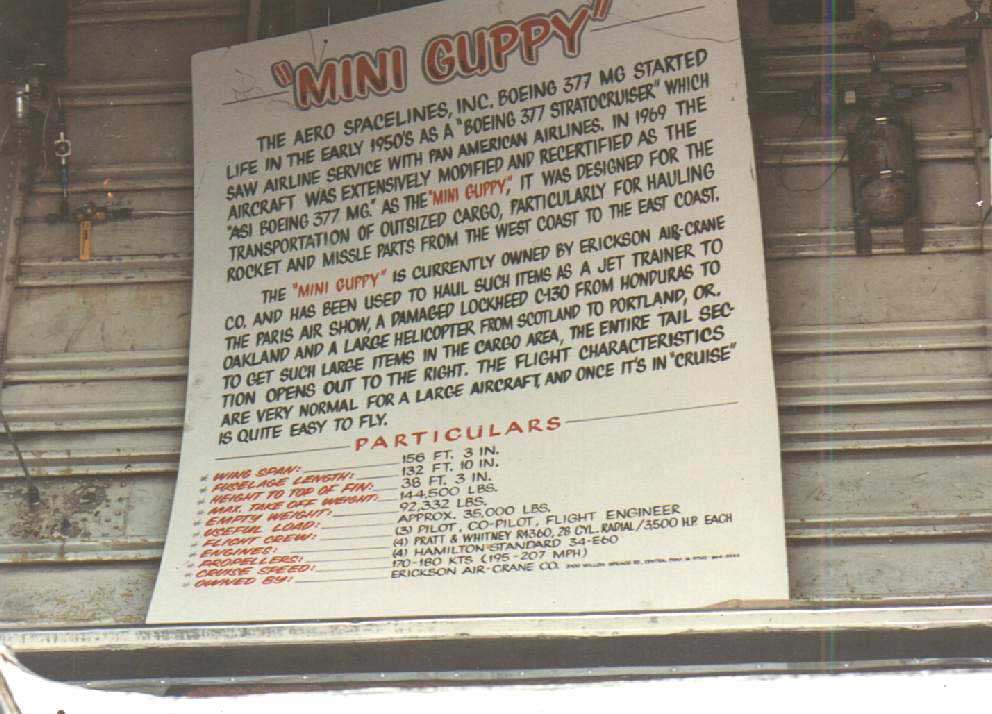 "MINI GUPPY"
THE AERO SPACELINES, INC. BOEING 377 MG STARTED
LIFE IN THE EARLY 1950'S AS A "BOEING 377 STRATOCRUISER" WHICH
SAW AIRLINE SERVICE WITH PAN AMERICAN AIRLINES. IN 1969 THE
AIRCRAFT WAS EXTENSIVELY MODIFIED AND RECERTIFIED AS THE
"ASI BOEING 377 MG." AS THE "MINI GUPPY", IT WAS DESIGNED FOR THE
TRANSPORTATION OF OUTSIZED CARGO, PARTICULARLY FOR HAULING
ROCKET AND MISSLE PARTS FROM THE WEST COAST TO THE EAST COAST.
THE "MINI GUPPY" IS CURRENTLY OWNED BY ERICKSON AIR-CRANE
CO. AND HAS BEEN USED TO HAUL SUCH ITEMS AS A JET TRAINER TO
THE PARIS AIR SHOW, A DAMAGED LOCKHEED C-130 FROM HONDURAS TO
OAKLAND AND A LARGE HELICOPTER FROM SCOTLAND TO PORTLAND, OR.
TO GET SUCH LARGE ITEMS IN THE CARGO AREA, THE ENTIRE TAIL SEC-
TION OPENS OUT TO THE RIGHT. THE FLIGHT CHARACTERISTICS
ARE VERY NORMAL FOR A LARGE AIRCRAFT, AND ONCE IT'S IN "CRUISE"
IS QUITE EASY TO FLY.
PARTICULARS
WING SPAN: 156 FT. 3 IN.
FUSELAGE LENGTH: 132 FT. 10 IN.
HEIGHT TO TOP OF FIN: 38 FT. 3 IN.
MAX. TAKE OFF WEIGHT: 144,500 LBS.
EMPTY WEIGHT: 92,332 LBS.
USEFUL LOAD: APPROX. 35,000 LBS.
FLIGHT CREW: (3) PILOT, CO-PILOT, FLIGHT ENGINEER
ENGINES: (4) PRATT & WHITNEY R4360, 28 CYL. RADIAL/3500 H.P. EACH
PROPELLERS: (4) HAMILTON STANDARD 34-E60
CRUISE SPEED: 170-180 KTS (195-207 MPH)
OWNED BY: ERICKSON AIR-CRANE CO.